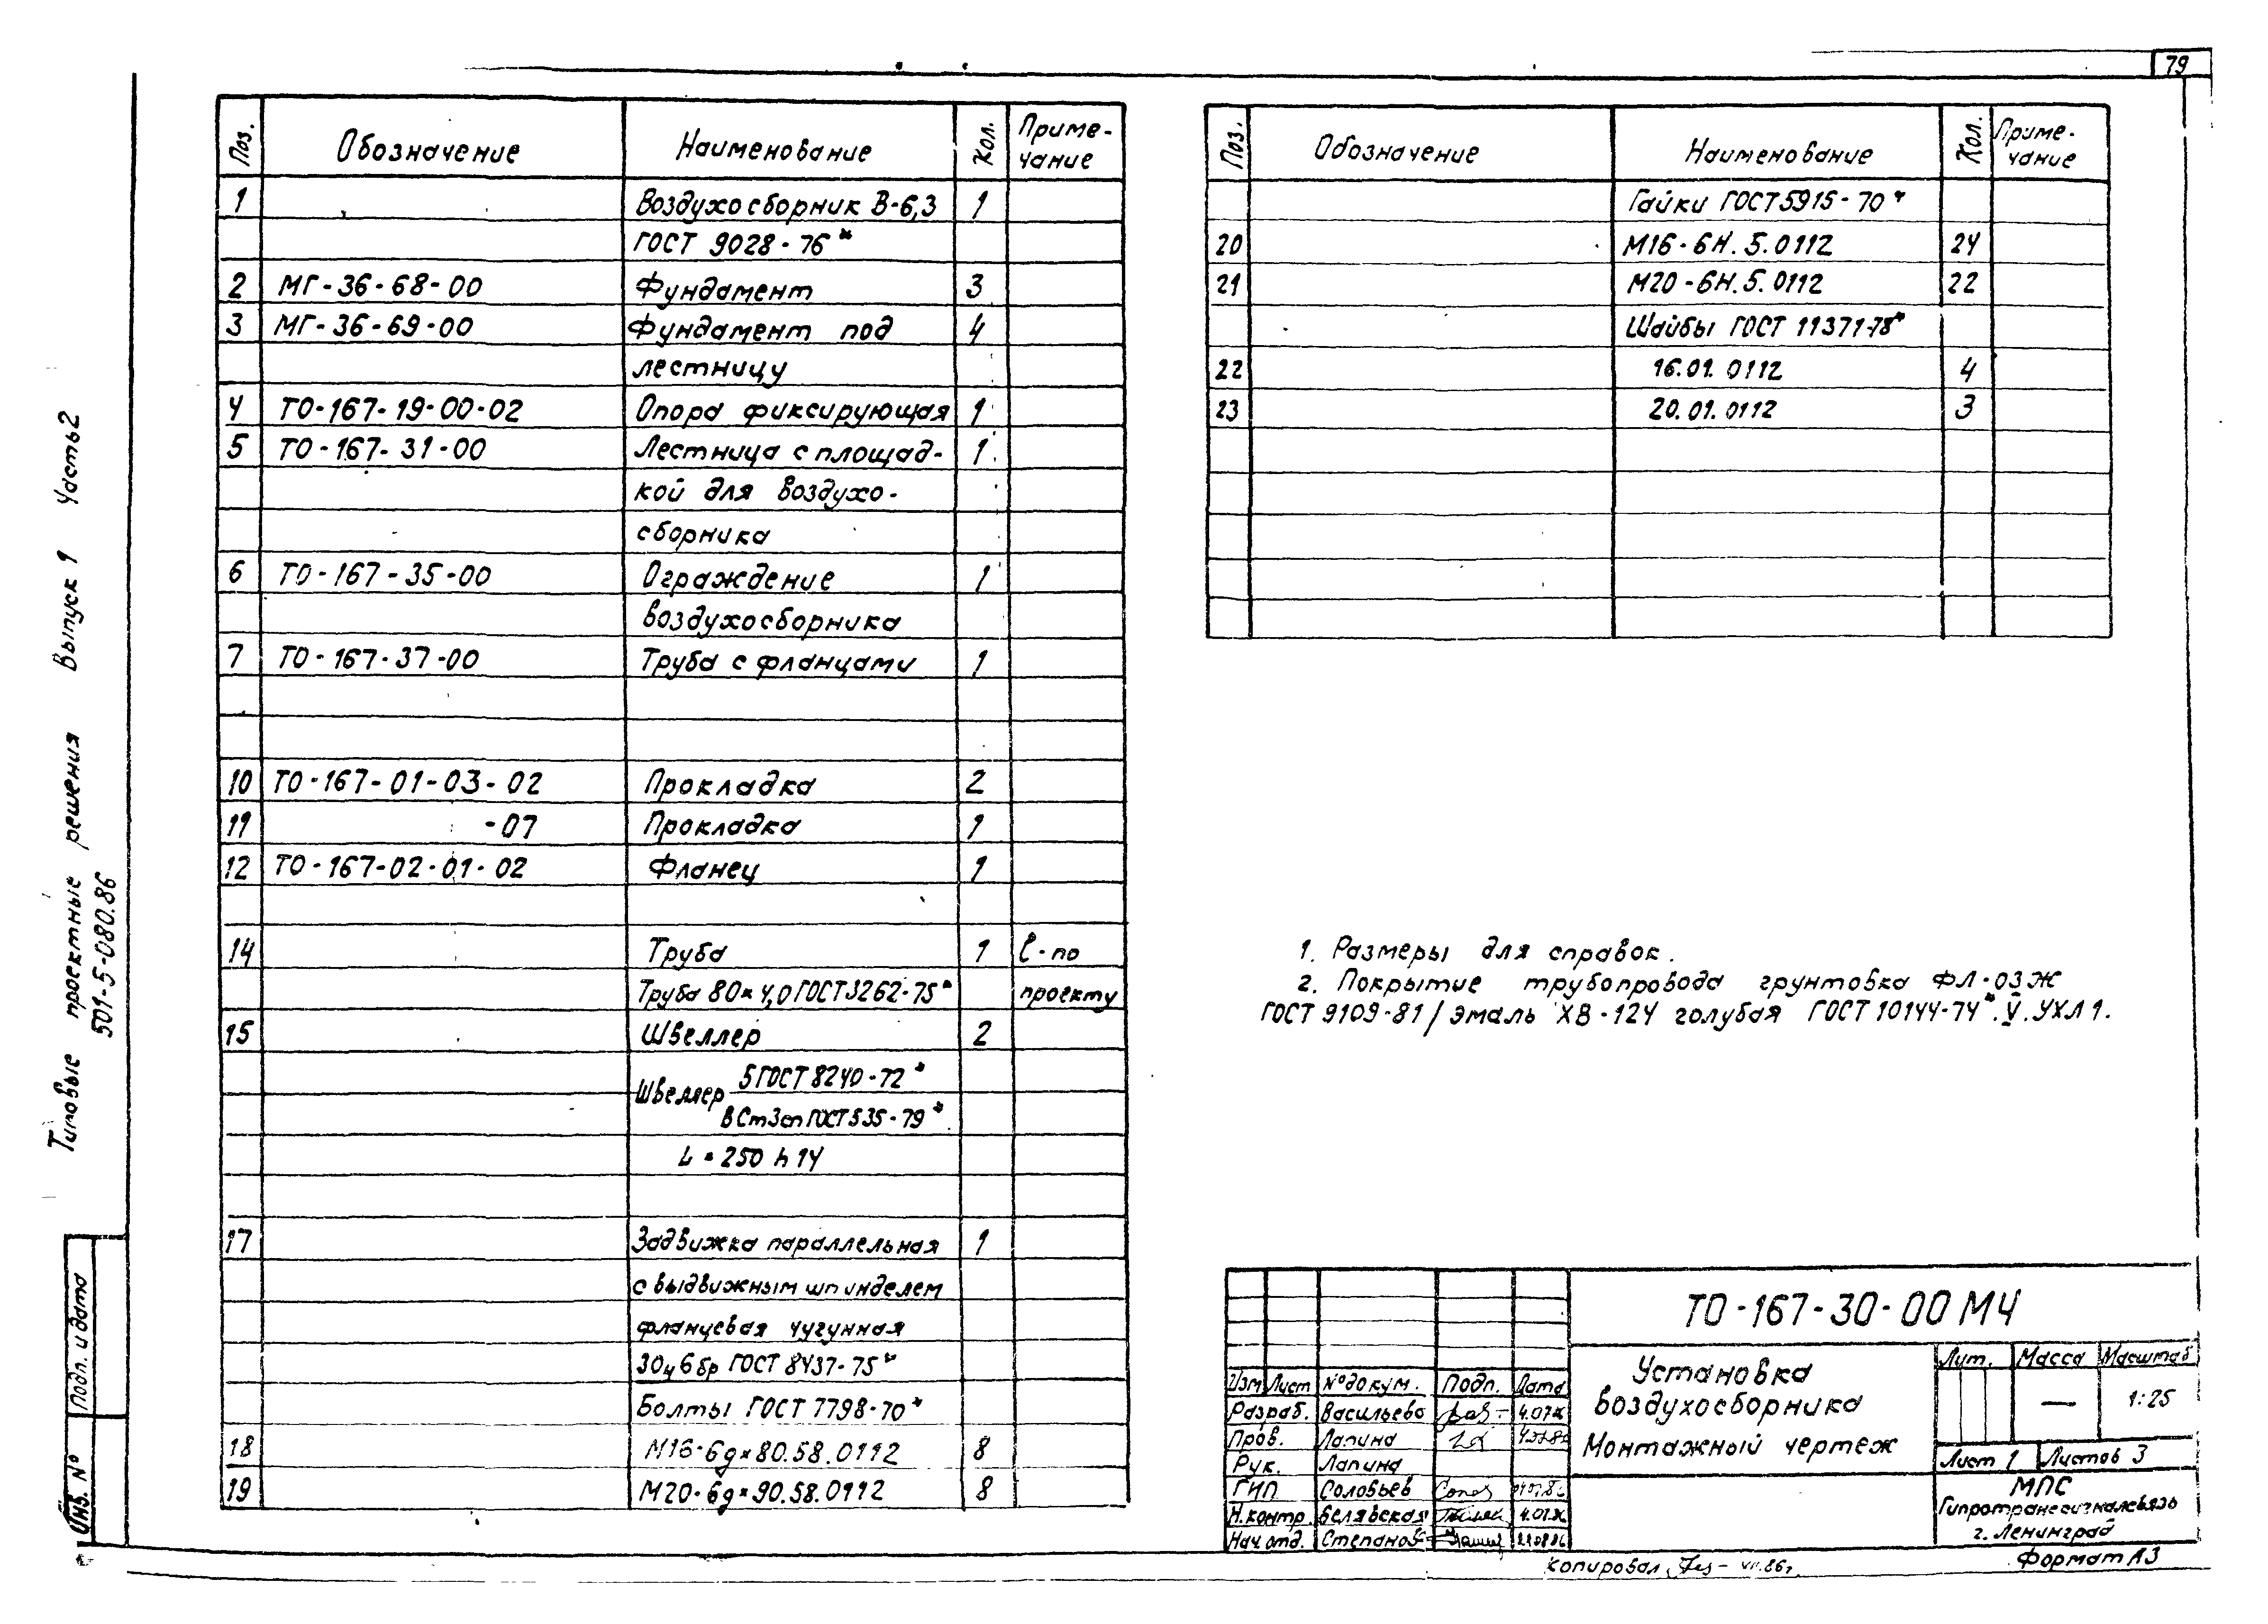 79
Типовые проектные решения Выпуск 1 Часть 2
501-5-080.86
Поз. Обозначение Наименование Кол. Приме-
чание
1 Воздухосборник В-6,3 1
ГОСТ 9028-76*
2 МГ-36-68-00 Фундамент 3
3 МГ-36-69-00 Фундамент под 4
лестницу
4 ТО-167-19-00-02 Опора фиксирующая 1
5 ТО-167-31-00 Лестница с площад- 1
кой для воздухо-
сборника
6 ТО-167-35-00 Ограждение 1
воздухосборника
7 ТО-167-37-00 Труба с фланцами 1
10 ТО-167-01-03-02 Прокладка 2
11 -07 Прокладка 1
12 ТО-167-02-01-02 Фланец 1
14 Труба 1 ℓ-по
Труба 80×4,0 ГОСТ 3262-75* проекту
15 Швеллер 2
Швеллер 5 ГОСТ 8240-72*
ВСт3сп ГОСТ 535-79*
L=250 h14
17 Задвижка параллельная 1
с выдвижным шпинделем
фланцевая чугунная
30ч6бр ГОСТ 8437-75*
Болты ГОСТ 7798-70*
18 М16-6g×80.58.0112 8
19 М20-6g×90.58.0112 8
Поз. Обозначение Наименование Кол. Приме-
чание
Гайки ГОСТ 5915-70*
20 М16-6Н.5.0112 24
21 М20-6Н.5.0112 22
Шайбы ГОСТ 11371-78*
22 16.01.0112 4
23 20.01.0112 3
1. Размеры для справок.
2. Покрытие трубопровода грунтовка ФЛ-03Ж
ГОСТ 9109-81/ эмаль ХВ-124 голубая ГОСТ 10144-74*.V.УХЛ1.
ТО-167-30-00 МЧ
Установка
воздухосборника
Монтажный чертеж
Лит. Масса Масштаб
— 1:25
Лист 1 Листов 3
МПС
Гипротранссигналсвязь
г. Ленинград
Изм Лист № докум. Подп. Дата
Разраб. Васильева
Пров. Лапина
Рук. Лапина
ГИП Соловьев
Н.контр. Белявская
Нач.отд. Степанов
Копировал VII.86г.
Формат А3
Подп. и дата
Инв. №